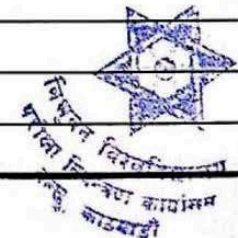 त्रिभुवन विश्वविद्यालय
परीक्षा नियन्त्रण कार्यालय
काठमाडौं